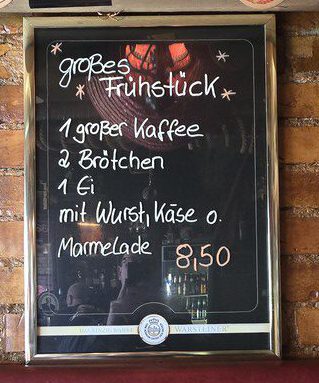 großes
Frühstück
1 großer Kaffee
2 Brötchen
1 Ei
mit Wurst, Käse o.
Marmelade 8,50
WARSTEINER